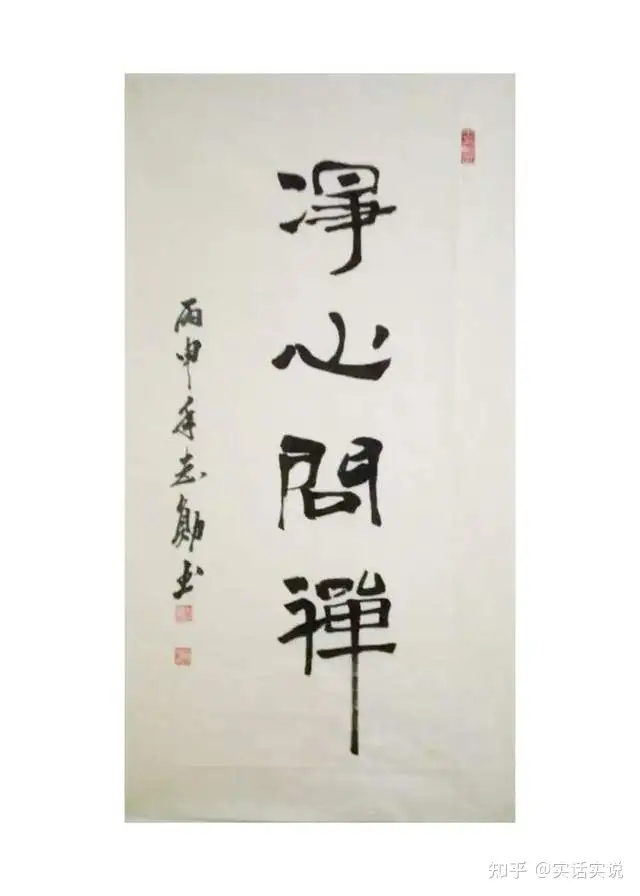 淨心問禪
丙申年志勛书
知乎 @实话实说